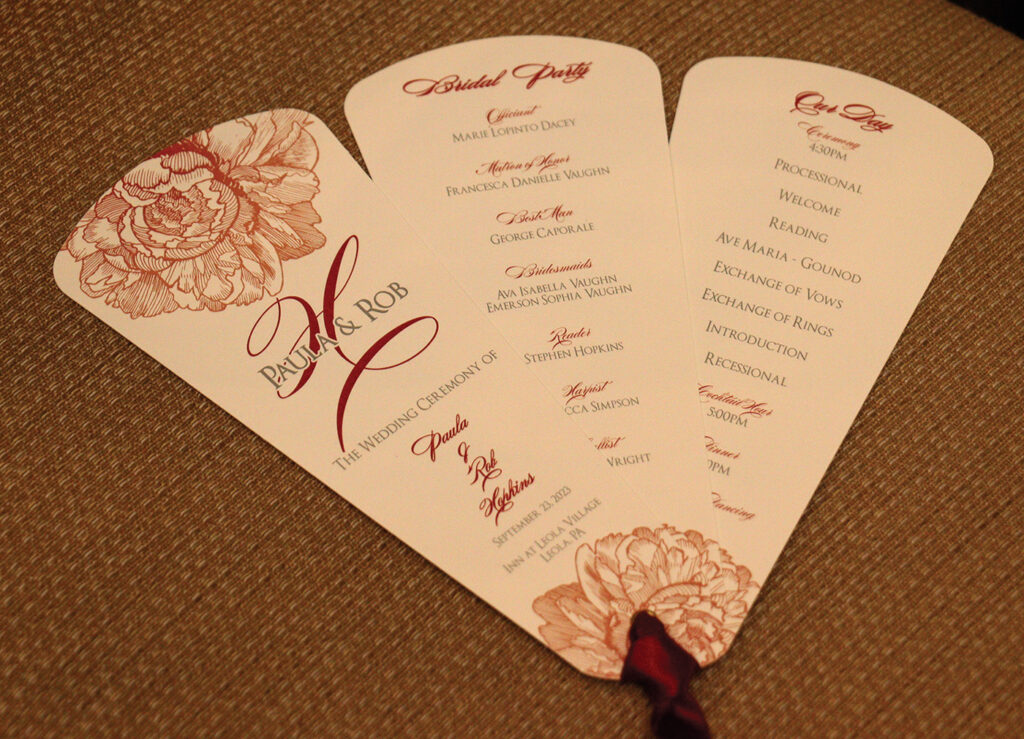 H
Paula & Rob
The Wedding Ceremony of
Paula
&
Rob
Hopkins
September 23, 2023
Inn at Leola Village
Leola, PA
Bridal Party
Officiant
Marie Lopinto Dacey
Matron of Honor
Francesca Danielle Vaughn
Best Man
George Caporale
Bridesmaids
Ava Isabella Vaughn
Emerson Sophia Vaughn
Reader
Stephen Hopkins
Harpist
cca Simpson
llist
Wright
Our Day
Ceremony
4:30PM
Processional
Welcome
Reading
Ave Maria - Gounod
Exchange of Vows
Exchange of Rings
Introduction
Recessional
Cocktail Hour
5:00PM
Dinner
0PM
Dancing